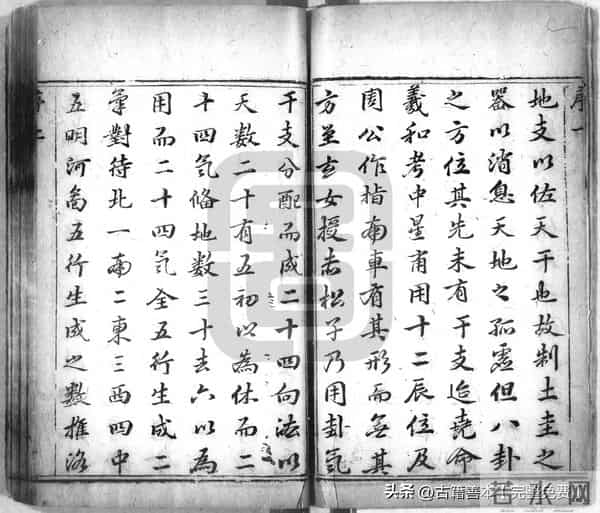 序一
地支以佐天干也故制土圭之
器以消息天地之孤虛但八卦
之方位其先未有干支迨堯命
羲和考中星甫用十二辰位及
周公作指南車有其形而無其
方至玄女授赤松子乃用卦氣
干支分配而成二十四向法以
天數二十有五初以為休而二
十四氣備地數三十去六以為
用而二十四氣全五行生成二
氣對待北一南二東三西四中
五明河圖五行生成之數推洛
序二
头条 @古籍善本 完整免费